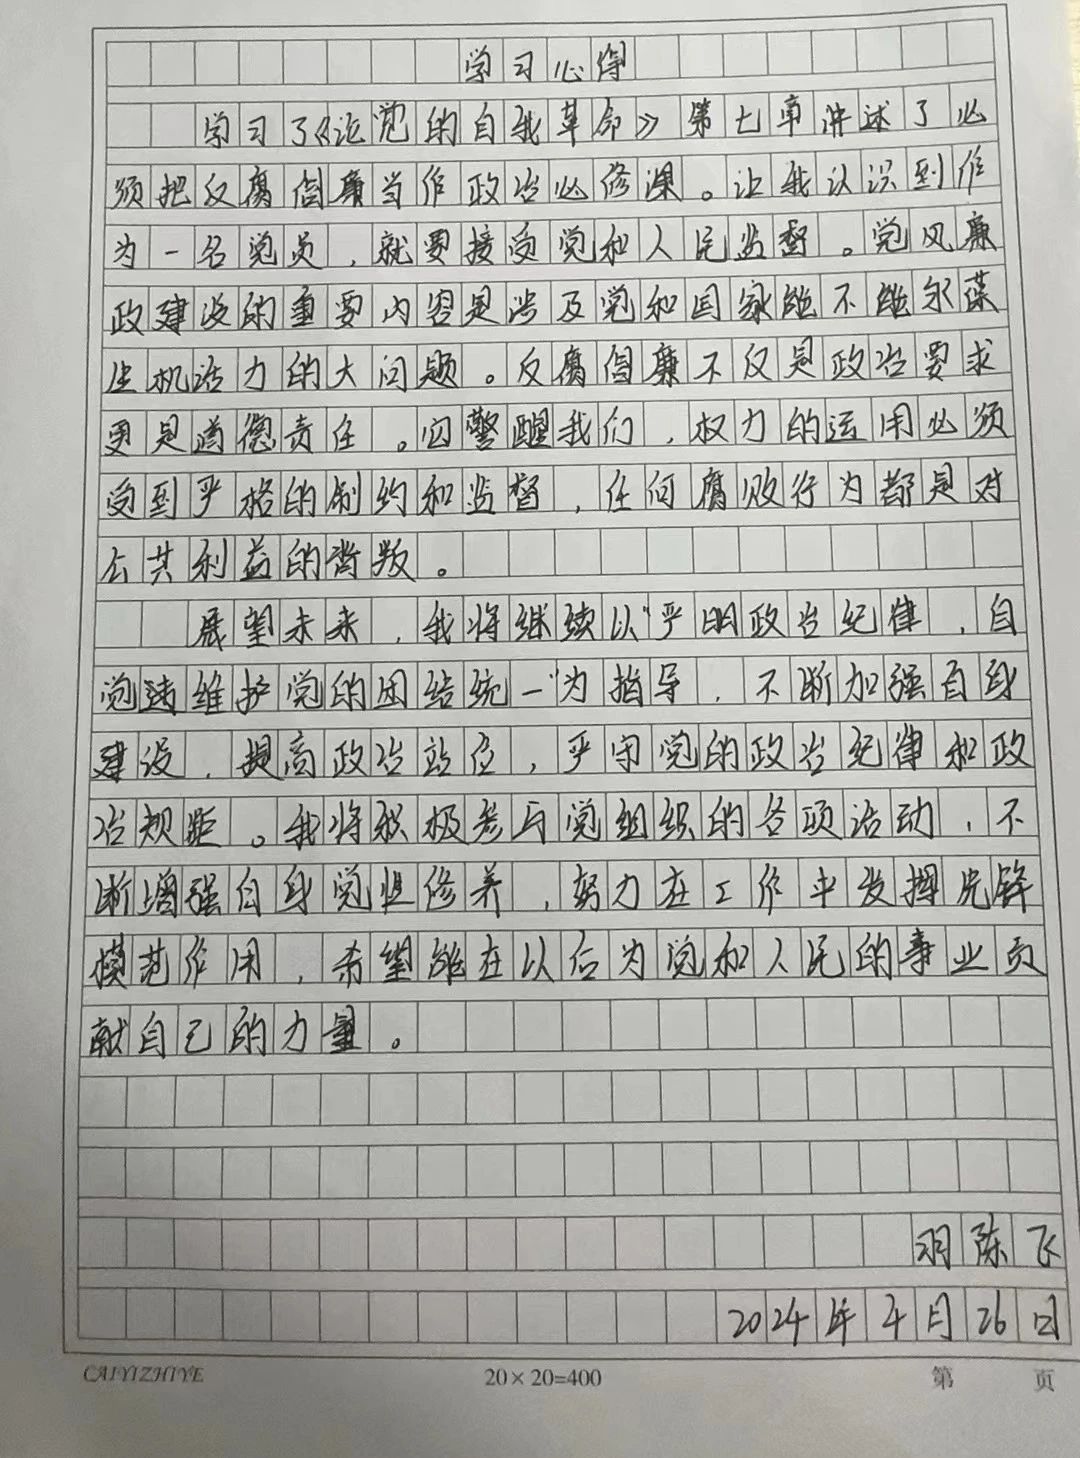 学习心得
学习了《论党的自我革命》第七章讲述了必
须把反腐倡廉当作政治必修课。让我认识到作
为一名党员，就要接受党和人民监督。党风廉
政建设的重要内容是涉及党和国家能不能永葆
生机活力的大问题。反腐倡廉不仅是政治要求
更是道德责任。它警醒我们，权力的运用必须
受到严格的制约和监督，任何腐败行为都是对
公共利益的背叛。
展望未来，我将继续以"严明政治纪律，自
觉维护党的团结统一"为指导，不断加强自身
建设，提高政治站位，严守党的政治纪律和政
治规距。我将积极参与党组织的各项活动，不
断增强自身党性修养，努力在工作中发挥先锋
模范作用，希望能在以后为党和人民的事业贡
献自己的力量。
陈飞
2024年4月26日
CAIYIZHIYE
20×20=400
第 页